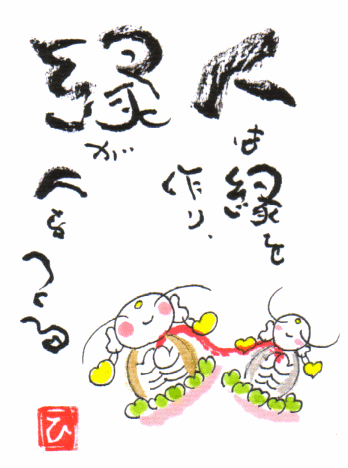 人は縁を
作り、
縁が
人をつくる
ひ